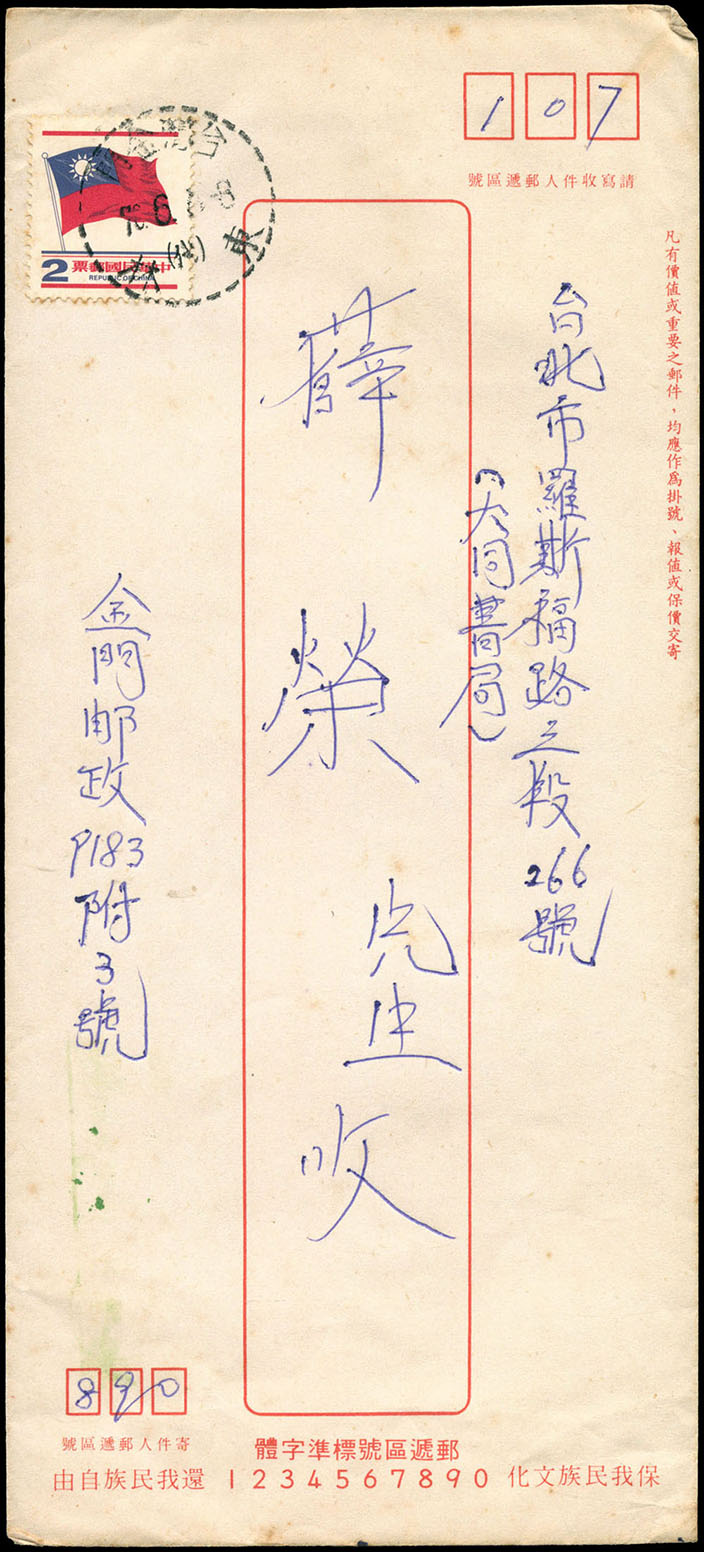 107
請寫收件人郵遞區號
凡有價值或重要之郵件，均應作為掛號、報值或保價交寄
台北市羅斯福路三段266號
(大同書局)
薛榮光先生收
中華民國郵票
REPUBLIC OF CHINA
2
台灣金門
東
金門邮政P183附3號
890
寄件人郵遞區號
郵遞區號標準字體
1234567890
保我民族文化
還我民族自由